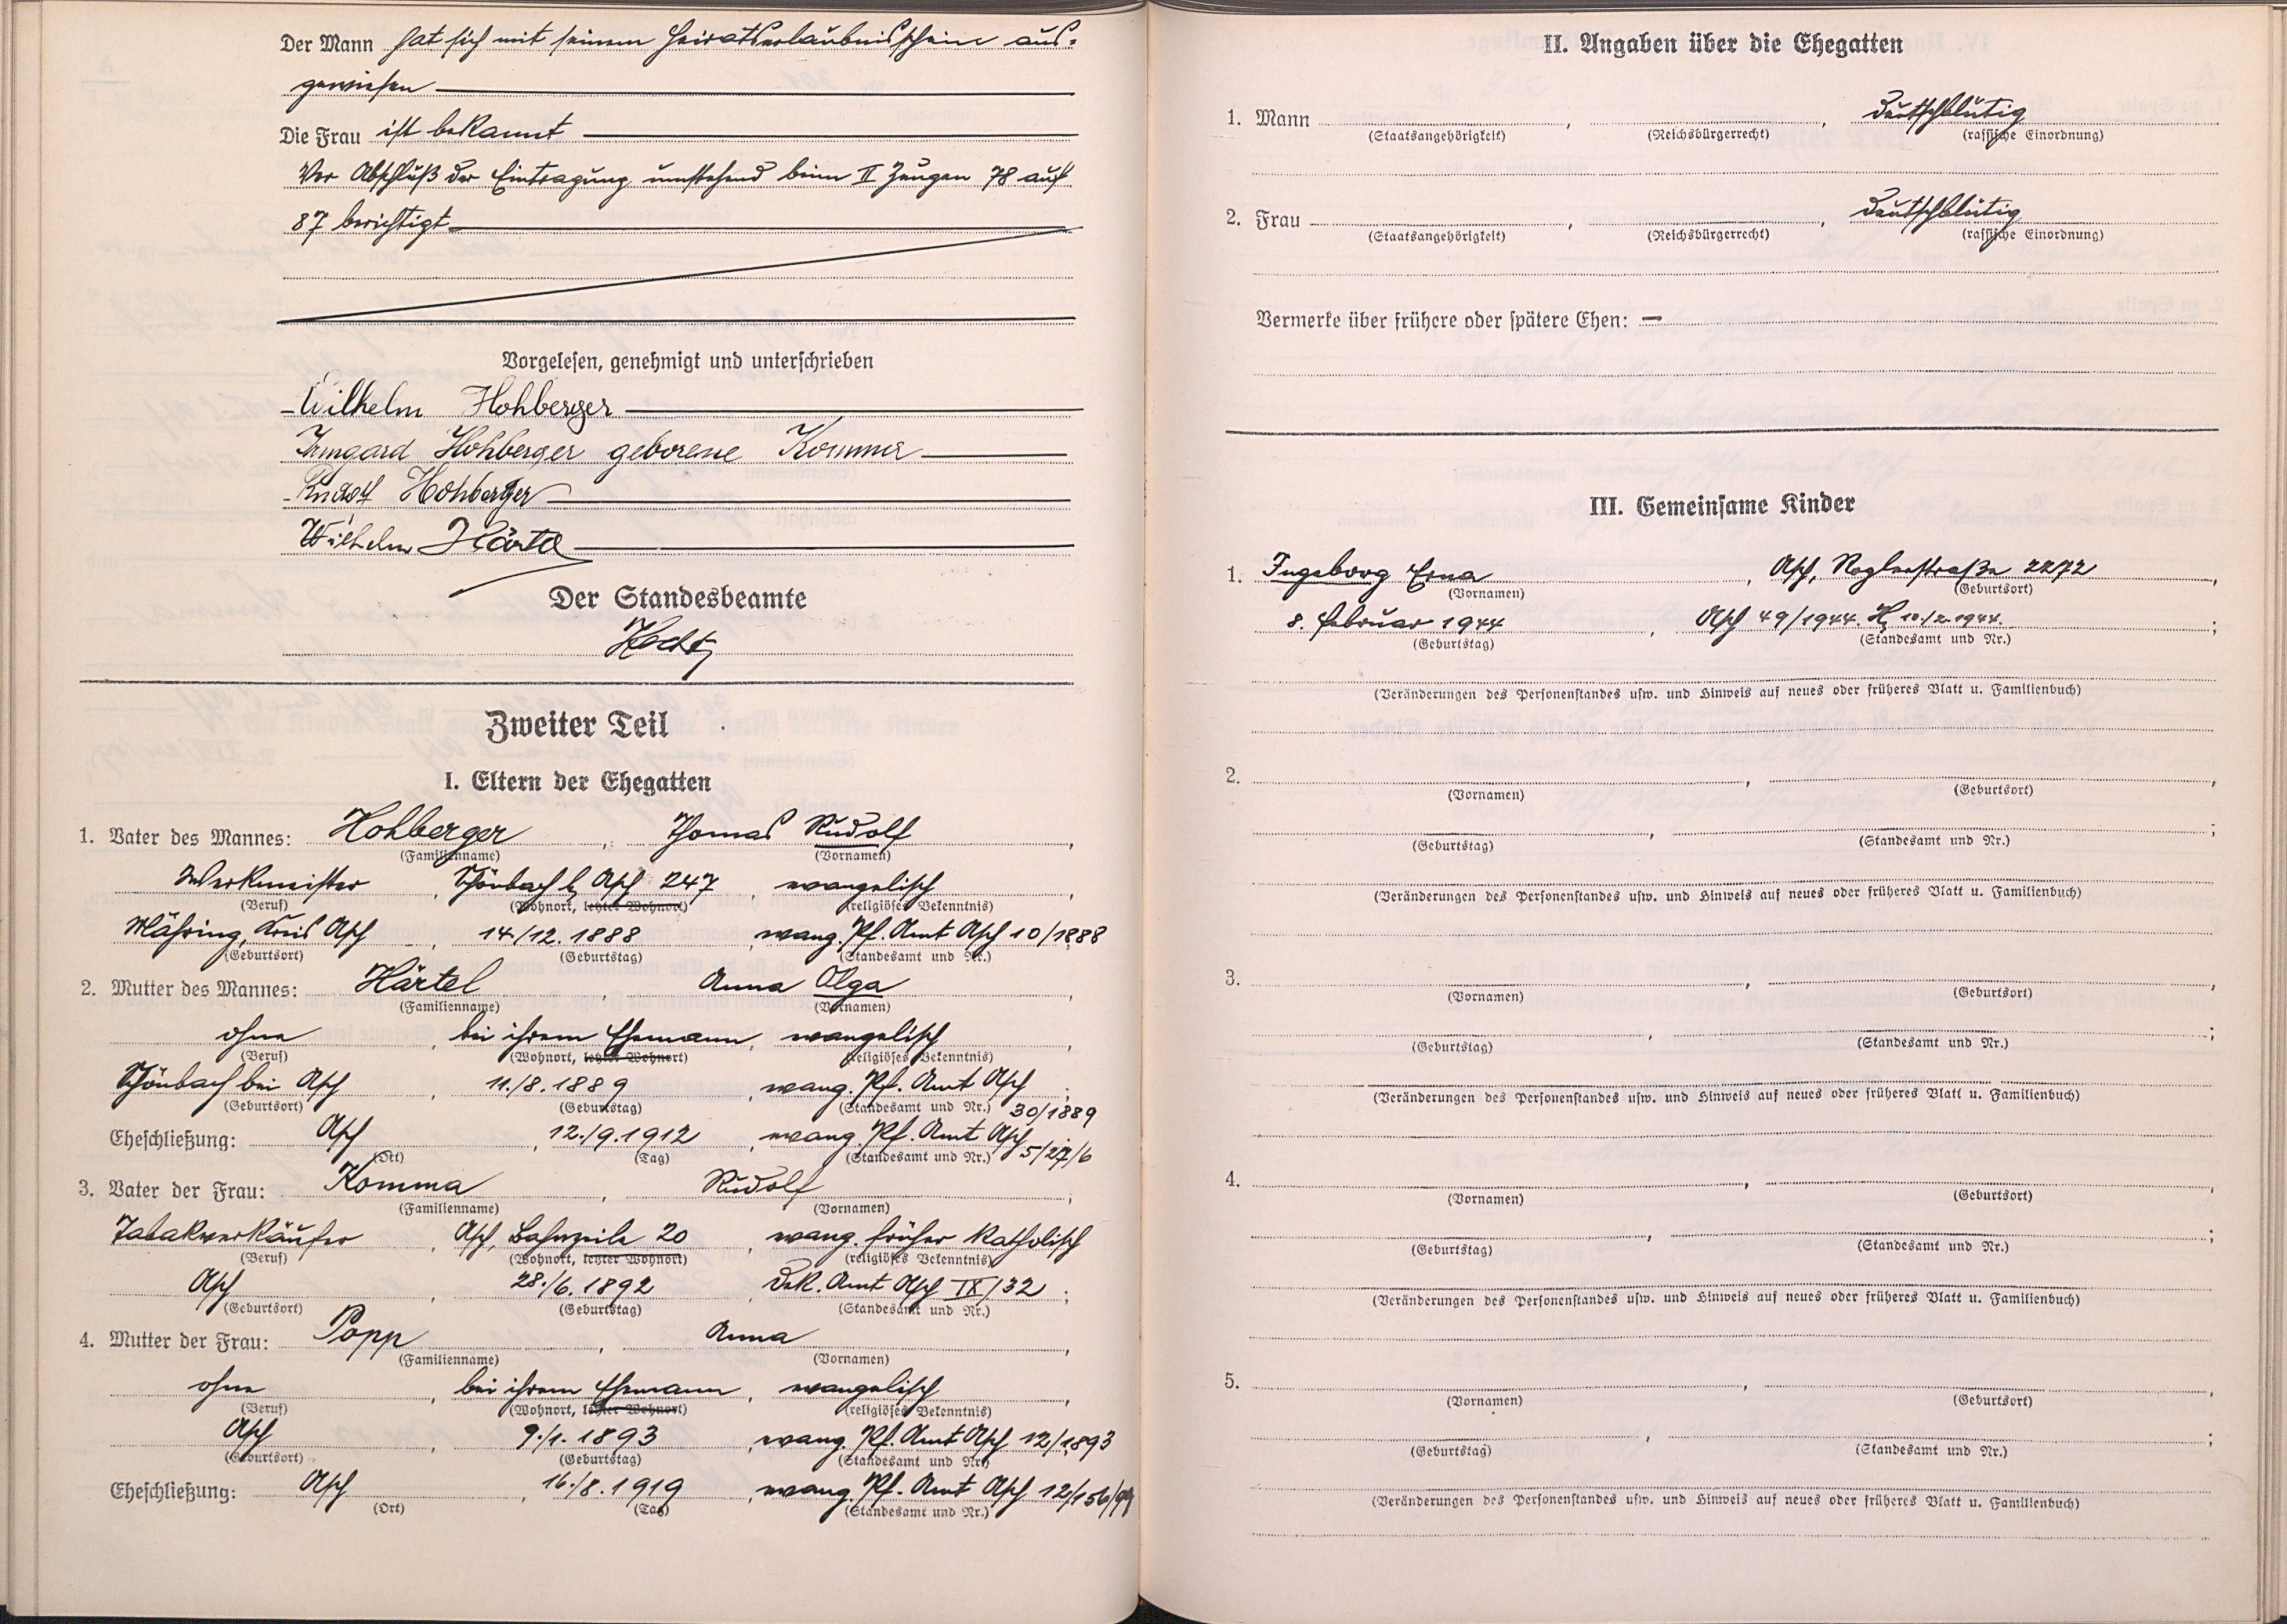 Der Mann hat sich mit seinem Heiratserlaubnisschein aus-
gewiesen
Die Frau ist bekannt
Vor Abschluß der Eintragung umstehend beim II Zeugen 78 auf
87 berichtigt
Vorgelesen, genehmigt und unterschrieben
Wilhelm Hohberger
Irmgard Hohberger geborene Komma
Rudolf Hohberger
Wilhelm Härtel
Der Standesbeamte
Zweiter Teil
I. Eltern der Ehegatten
1. Vater des Mannes: Hohberger, Thomas Rudolf,
(Familienname) (Vornamen)
Werkmeister, Schönbach b. Asch 247, evangelisch,
(Beruf) (Wohnort, letzter Wohnort) (religiöses Bekenntnis)
Mähring, Kreis Asch, 14./12. 1888, evang. Pf. Amt Asch 10/1888
(Geburtsort) (Geburtstag) (Standesamt und Nr.)
2. Mutter des Mannes: Härtel, Anna Olga,
(Familienname) (Vornamen)
ohne, bei ihrem Ehemann, evangelisch,
(Beruf) (Wohnort, letzter Wohnort) (religiöses Bekenntnis)
Schönbach bei Asch, 11./8. 1889, evang. Pf. Amt Asch;
(Geburtsort) (Geburtstag) (Standesamt und Nr.) 30/1889
Eheschließung: Asch, 12./9. 1912, evang. Pf. Amt Asch 5/27/6
(Ort) (Tag) (Standesamt und Nr.)
3. Vater der Frau: Komma, Rudolf,
(Familienname) (Vornamen)
Tabakverkäufer, Asch, Bahnzeile 20, evang. früher katholisch
(Beruf) (Wohnort, letzter Wohnort) (religiöses Bekenntnis)
Asch, 28./6. 1892, Dek. Amt Asch IX/32;
(Geburtsort) (Geburtstag) (Standesamt und Nr.)
4. Mutter der Frau: Popp, Anna,
(Familienname) (Vornamen)
ohne, bei ihrem Ehemann, evangelisch,
(Beruf) (Wohnort, letzter Wohnort) (religiöses Bekenntnis)
Asch, 9./1. 1893, evang. Pf. Amt Asch 12/1893
(Geburtsort) (Geburtstag) (Standesamt und Nr.)
Eheschließung: Asch, 16./8. 1919, evang. Pf. Amt Asch
(Ort) (Tag) (Standesamt und Nr.)
II. Angaben über die Ehegatten
1. Mann , , deutschblütig
(Staatsangehörigkeit) (Reichsbürgerrecht) (rassische Einordnung)
2. Frau , , deutschblütig
(Staatsangehörigkeit) (Reichsbürgerrecht) (rassische Einordnung)
Vermerke über frühere oder spätere Ehen: —
III. Gemeinsame Kinder
1. Ingeborg Erna, Asch, Roglerstraße 2272,
(Vornamen) (Geburtsort)
8. Februar 1944, Asch 49/1944. H, 10./2. 1944.;
(Geburtstag) (Standesamt und Nr.)
(Veränderungen des Personenstandes usw. und Hinweis auf neues oder früheres Blatt u. Familienbuch)
2. , ,
(Vornamen) (Geburtsort)
, ;
(Geburtstag) (Standesamt und Nr.)
(Veränderungen des Personenstandes usw. und Hinweis auf neues oder früheres Blatt u. Familienbuch)
3. , ,
(Vornamen) (Geburtsort)
, ;
(Geburtstag) (Standesamt und Nr.)
(Veränderungen des Personenstandes usw. und Hinweis auf neues oder früheres Blatt u. Familienbuch)
4. , ,
(Vornamen) (Geburtsort)
, ;
(Geburtstag) (Standesamt und Nr.)
(Veränderungen des Personenstandes usw. und Hinweis auf neues oder früheres Blatt u. Familienbuch)
5. , ,
(Vornamen) (Geburtsort)
, ;
(Geburtstag) (Standesamt und Nr.)
(Veränderungen des Personenstandes usw. und Hinweis auf neues oder früheres Blatt u. Familienbuch)